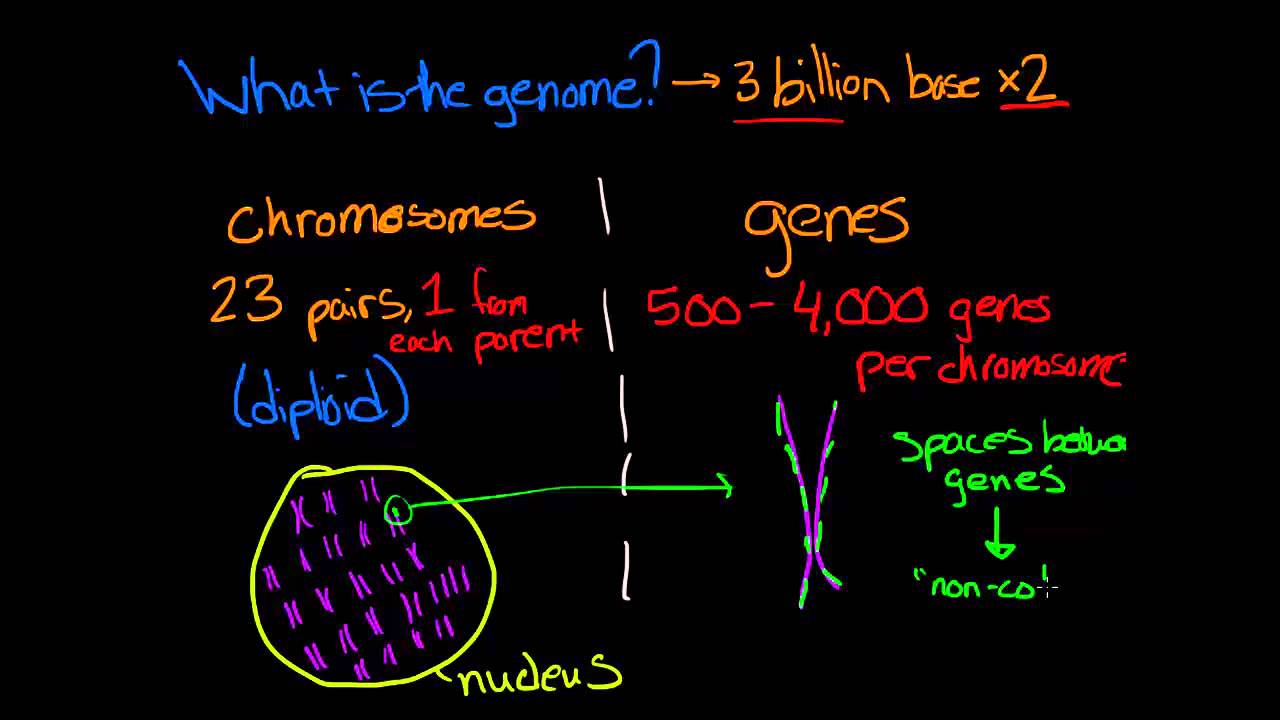 What is the genome? → 3 billion base ×2
chromosomes
23 pairs, 1 from
each parent
(diploid)
nucleus
genes
500 - 4,000 genes
per chromosome
spaces betwe
genes
"non-co